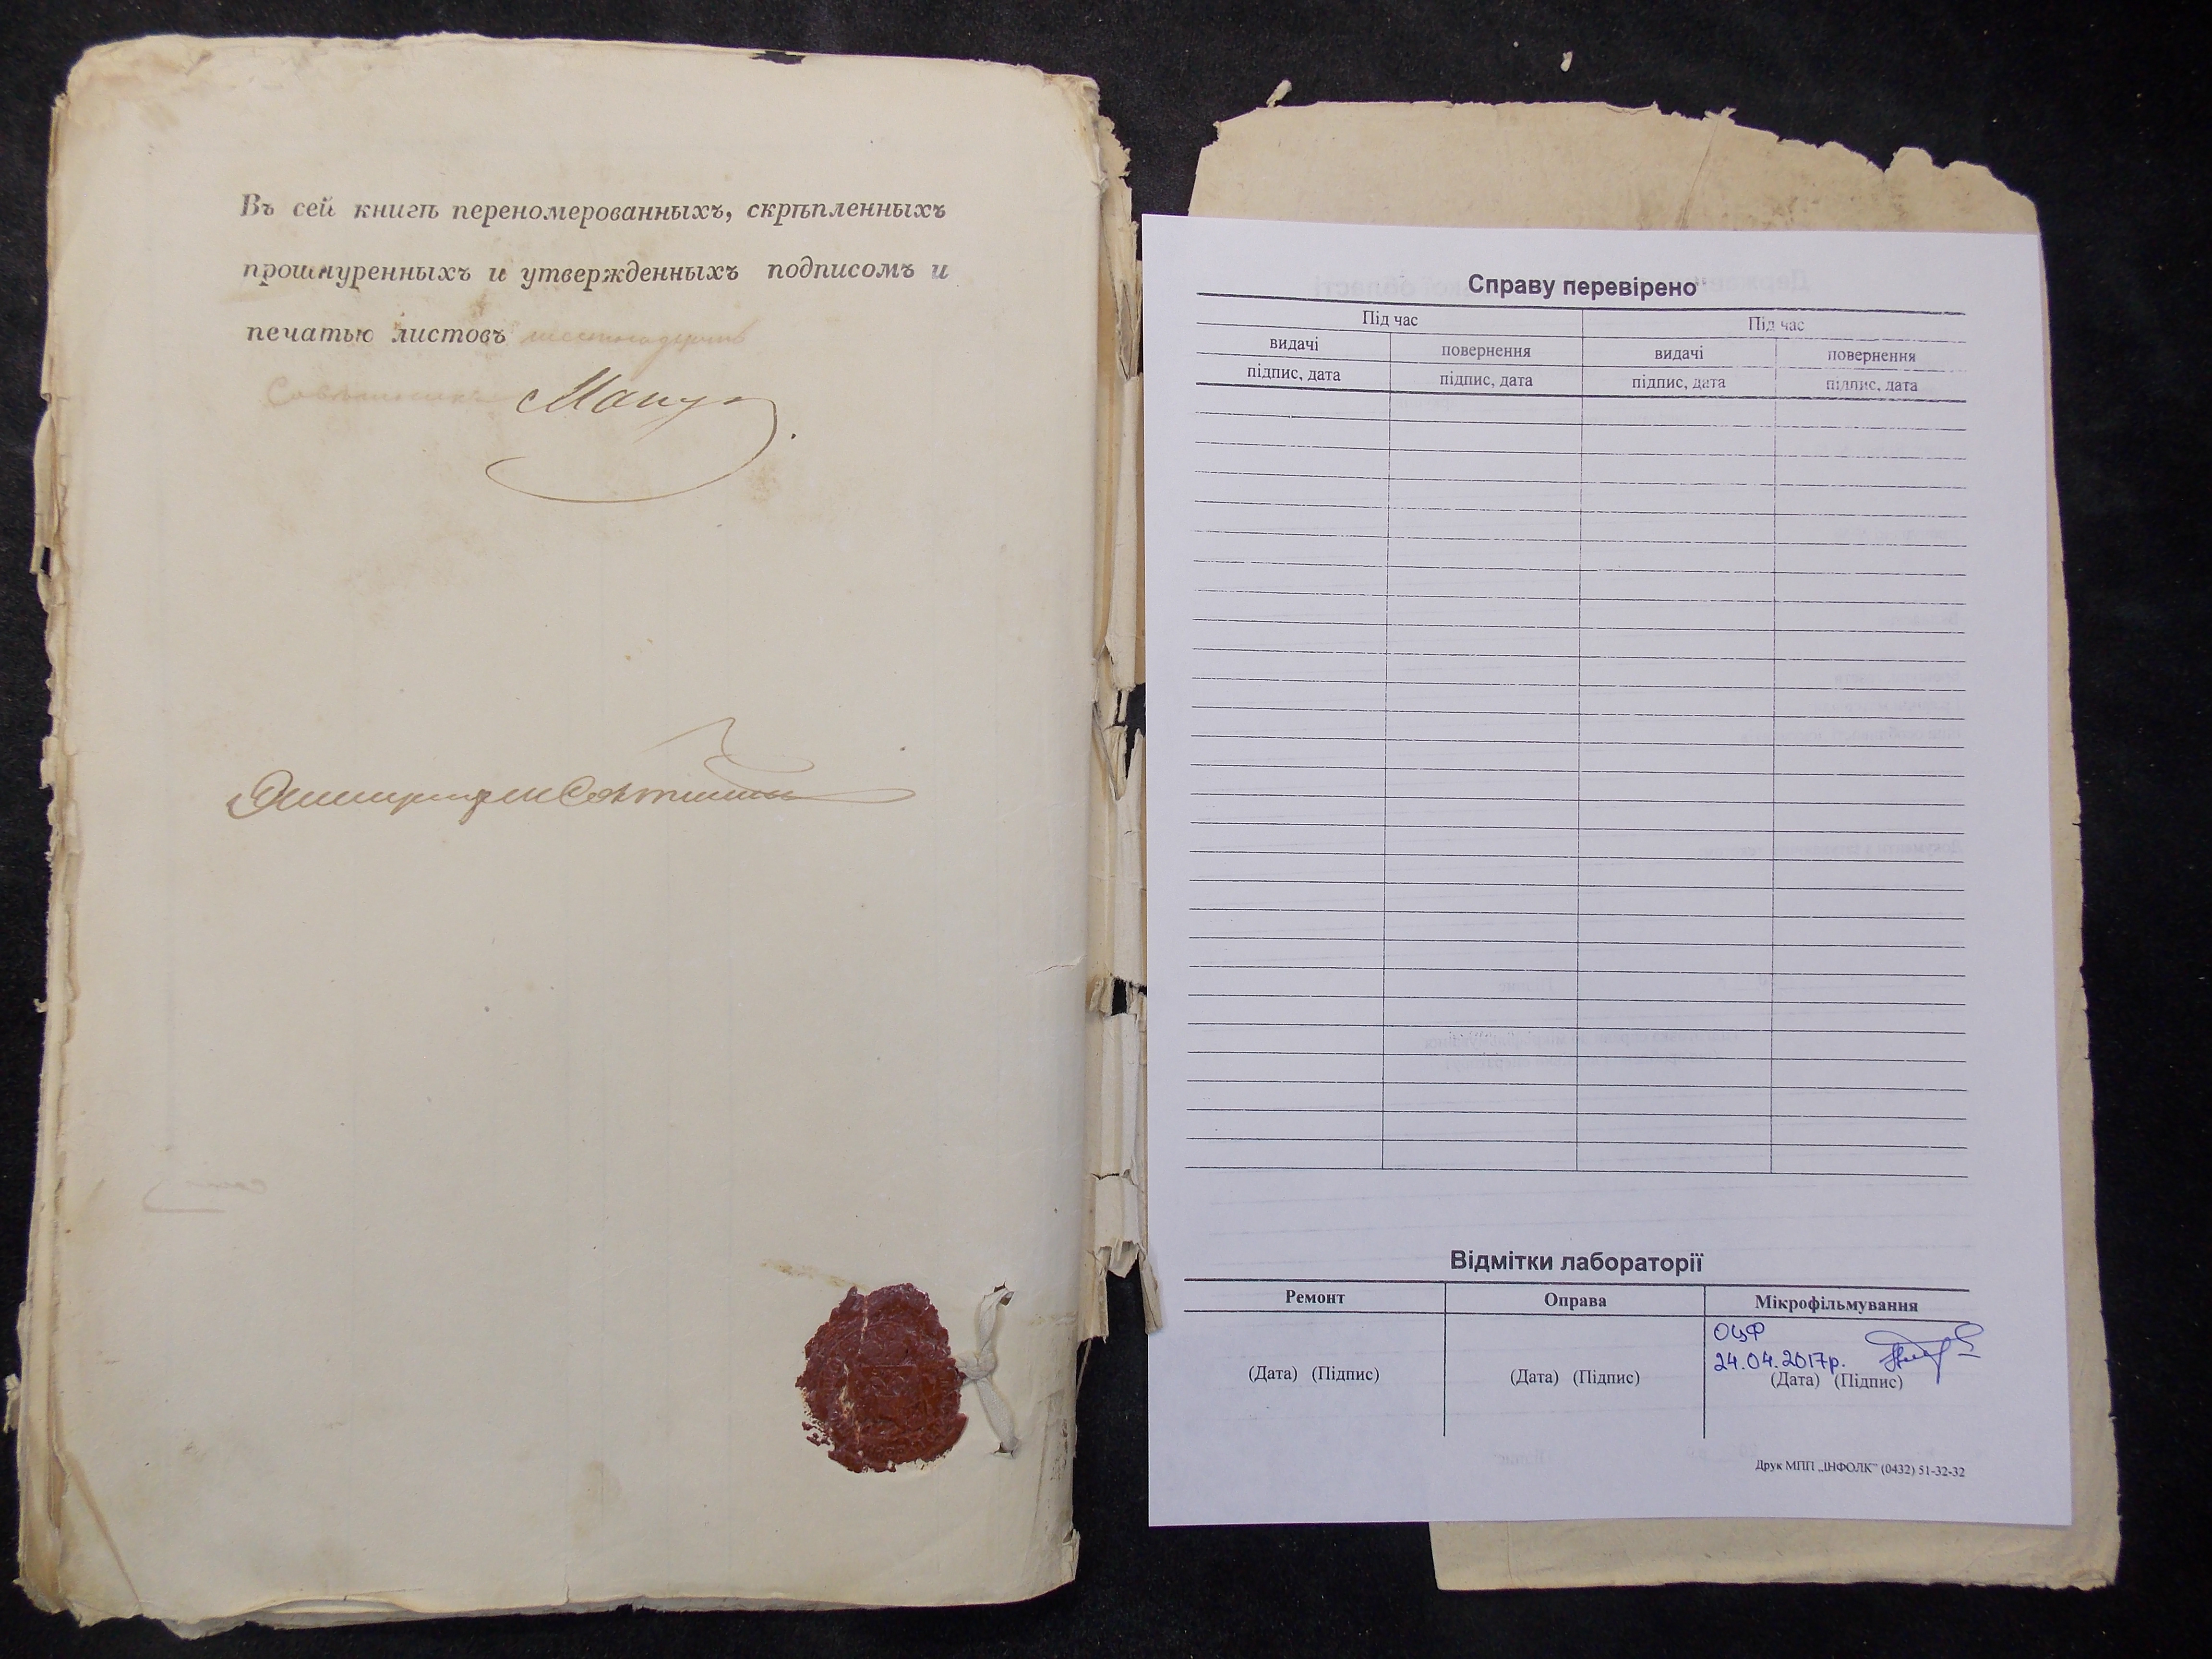 Въ сей книгѣ переномерованныхъ, скрѣпленныхъ
прошнуренныхъ и утвержденныхъ подписомъ и
печатью листовъ
Совѣтникъ
Справу перевірено
Під час Під час
видачі повернення видачі повернення
підпис, дата підпис, дата підпис, дата підпис, дата
Відмітки лабораторії
Ремонт Оправа Мікрофільмування
ОЦФ
24.04.2017р.
(Дата) (Підпис) (Дата) (Підпис) (Дата) (Підпис)
Друк МПП „ІНФОЛК” (0432) 51-32-32